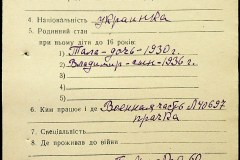 4. Національність украинка
5. Родинний стан
при ньому діти до 16 років:
1) Тала-дочь-1930 г.
2) Владимир-сын-1936 г.
3)
4)
5)
6. Ким працює і де Военная часть №40697
прачка
7. Спеціяльність
8. Де проживав до війни